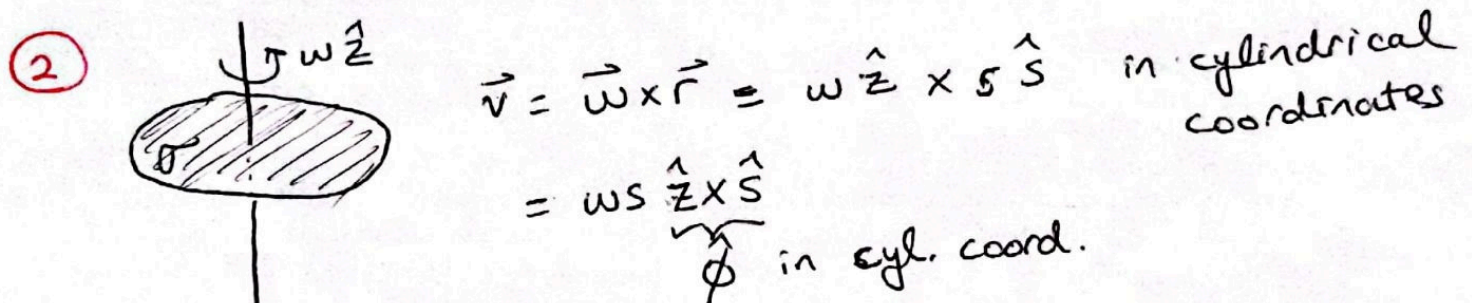 2
ωẑ
σ
v⃗ = ω⃗ x r⃗ = ω ẑ x s ŝ in cylindrical coordinates
= ωs ẑ x ŝ
φ̂ in cyl. coord.